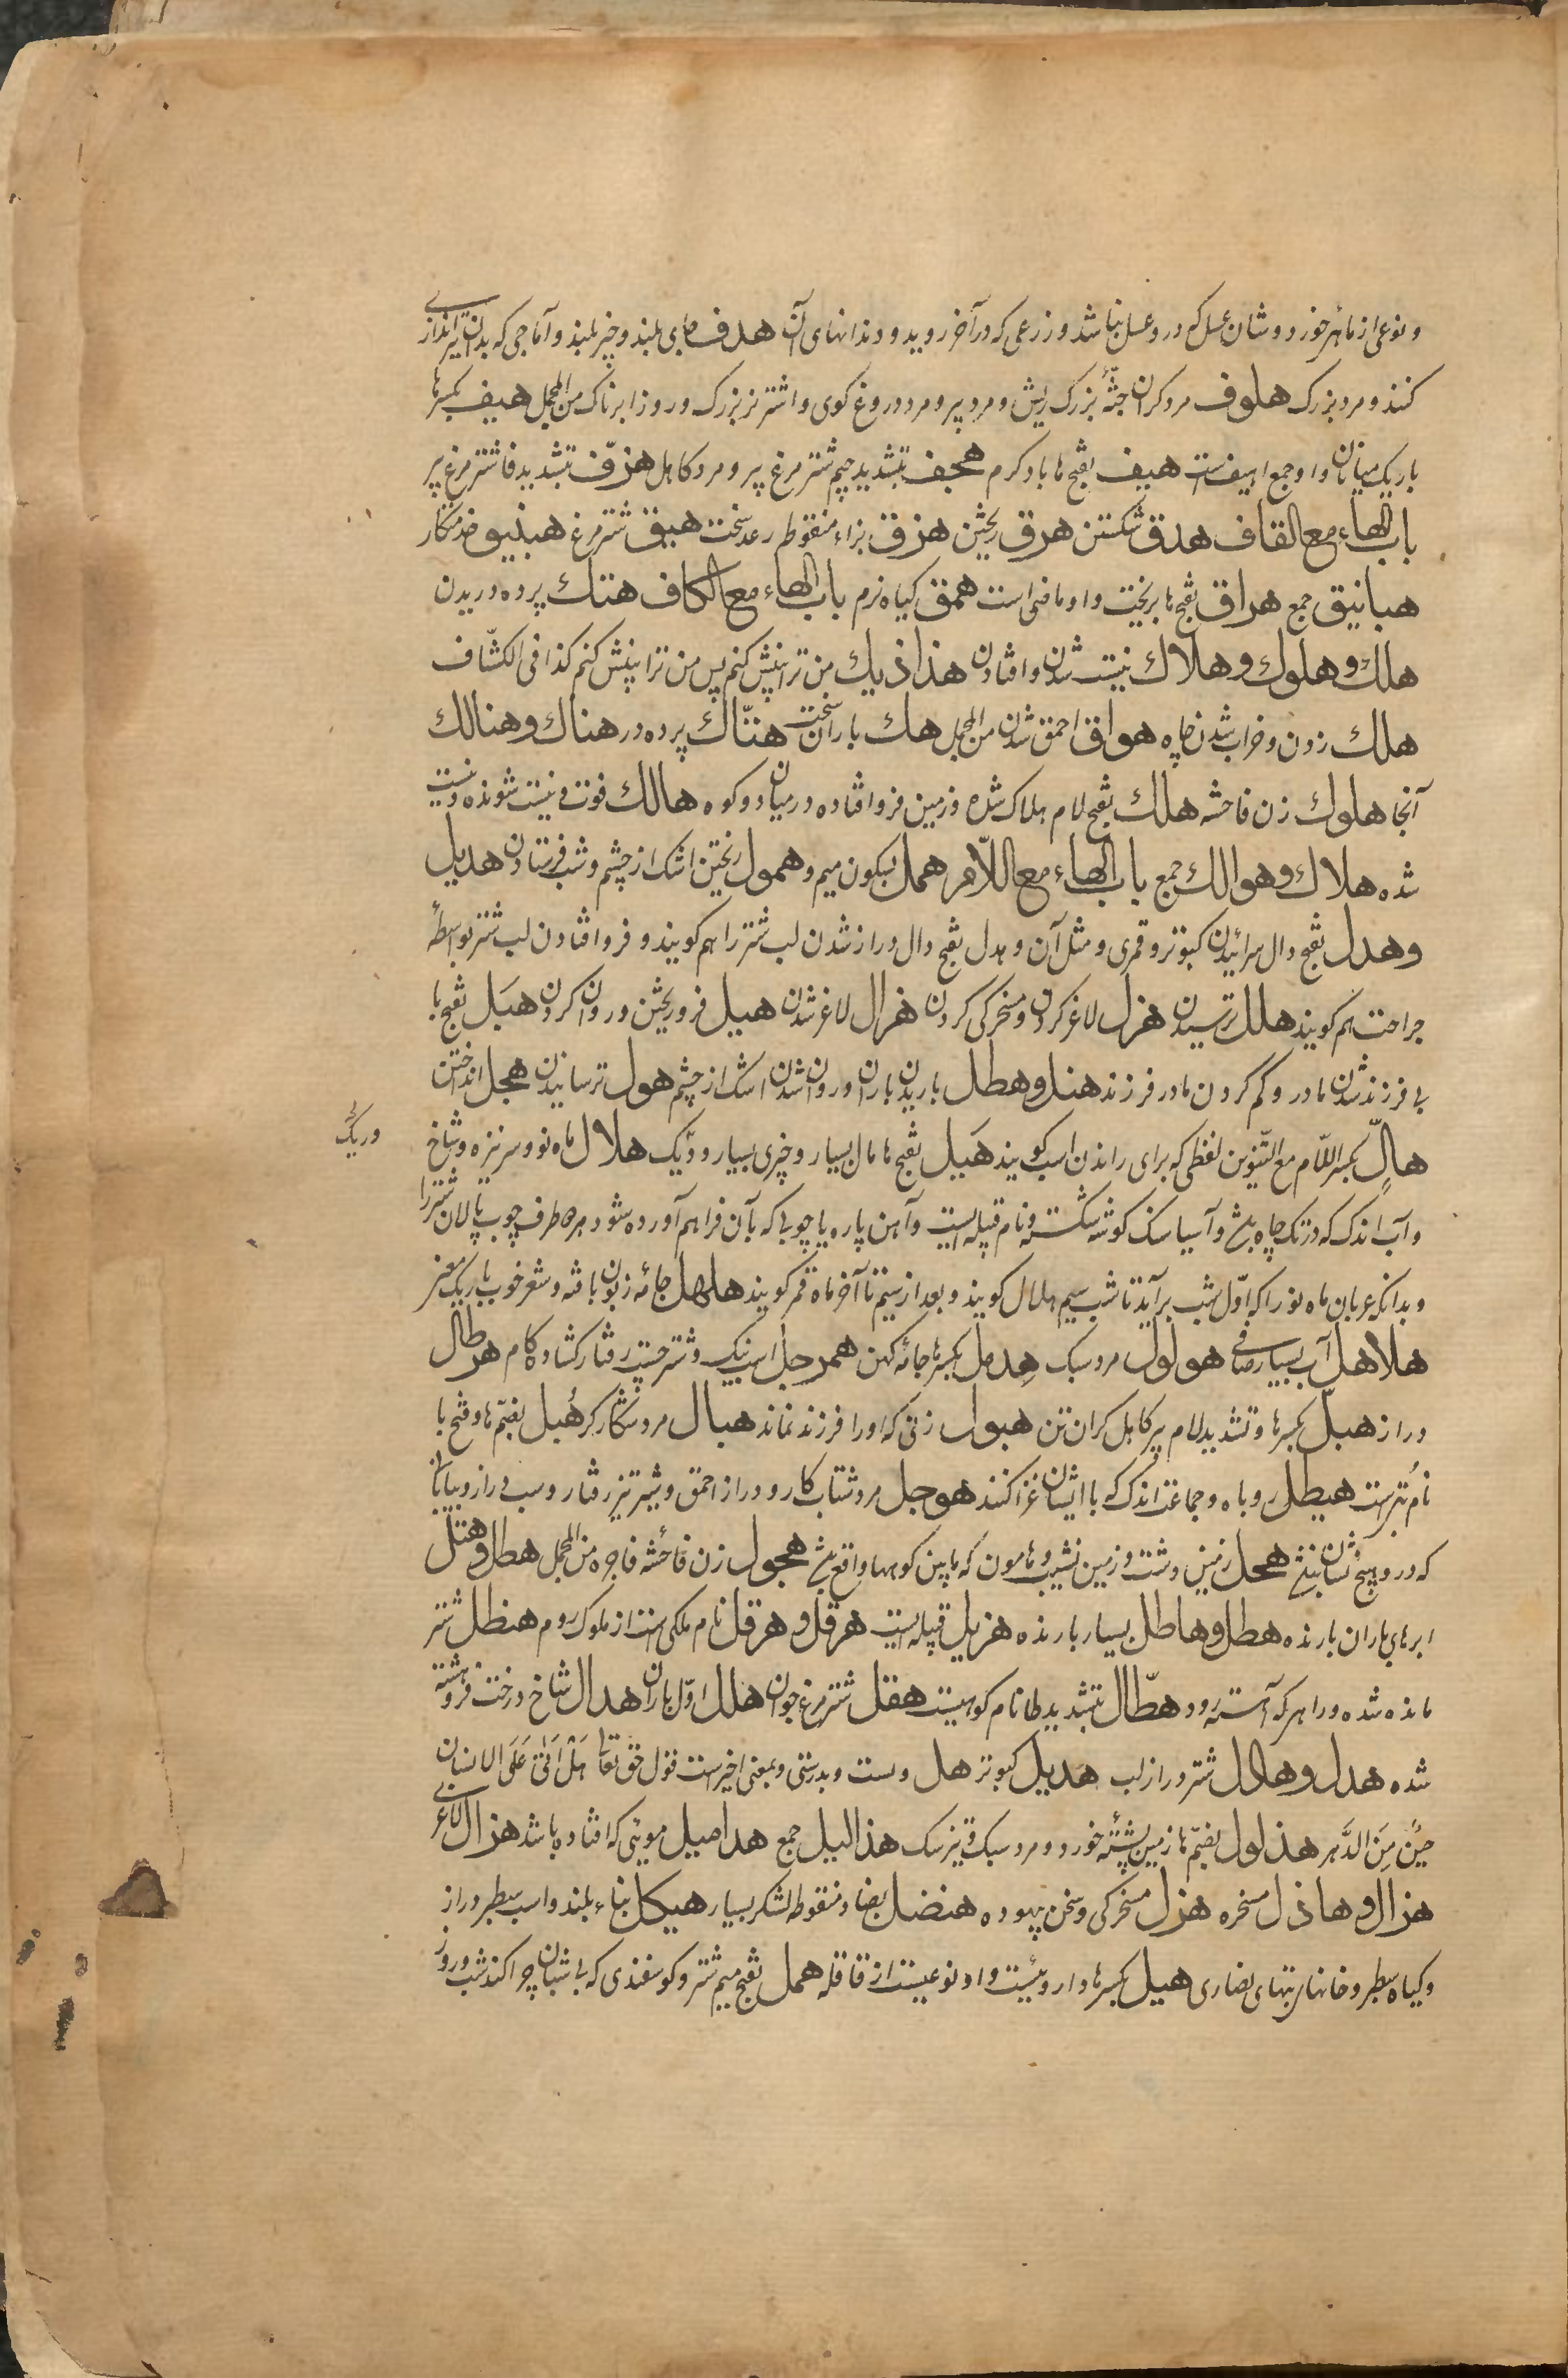 و نوعی از ماهی خورد و شان عسل که درو عسل نباشد و زرعی که در آخر روید و دندانهای آن هدف جای بلند و چیز بلند و آماجی که بدان تیراندازی
کنند و مرد بزرک هلوف مرد کران جثهٔ بزرک ریش و مرد پیر و مرد دروغ کوی و اشتر نر بزرک و روز ابرناک من المجمل هیف بکسر ها
باریک میانان و او جمع اهیف است هیف بفتح ها باد کرم هجف بتشدید جیم شتر مرغ پیر و مرد کاهل هزف بتشدید فا شتر مرغ پیر
باب الهاء مع القاف هدق شکستن هرق ریختن هزق بزاء منقوطه رعد سخت هیق شتر مرغ هبنیق خدمتکار
هبانیق جمع هراق بفتح ها بریخت و او ماضی است همق کیاه نرم باب الهاء مع الکاف هتك پرده دریدن
هلك و هلوك و هلاك نیست شدن و افتادن هذاذیك من ترا پیش کنم پس من ترا پیش کنم کذا فی الکشّاف
هلك زدن و خراب شدن چاه هواق احمق شدن من المجمل هك باران سخت هتّاك پرده در هناك و هنالك
آنجا هلوك زن فاحشه هلك بفتح لام هلاک شده و زمین فرو افتاده در میان دو کوه هالك فوت و نیست شونده و نیست
شده هلاك و هوالك جمع باب الهاء مع اللّام همل بسکون میم و همول ریختن اشک از چشم و شب فرستادن هدیل
و هدل بفتح دال سرائیدن کبوتر و قمری و مثل آن و هدل بفتح دال دراز شدن لب شتر را هم کویند و فرو افتادن لب شتر بواسطهٔ
جراحت هم کویند هلل ترسیدن هزل لاغر کردن و مسخرکی کردن هزال لاغر شدن هیل فرو ریختن و روان کردن هبل بفتح با
بی فرزند شدن مادر و کم کردن مادر فرزند هتل و هطل باریدن باران و روان شدن اشک از چشم هول ترسانیدن هجل انداختن
هالٍ بکسر اللّام مع التّنوین لفظی که برای راندن اسب کویند هَیل بفتح ها مال بسیار و چیزی بسیار و ریک هلال ماه نو و سر نیزه و شاخ
وریکی
و آب اندک که در تک چاه باشد و آسیا سنک کوشه شکسته و نام قبیله ایست و آهن پاره یا چوبی که بآن فراهم آورده شود هر دو طرف چوب پالان شتر را
و بدانکه عربان ماه نو را که اوّل شب برآید تا شب سیم هلال کویند و بعد از سیم تا آخر ماه قمر کویند هلهل جامهٔ زبون بافته و شعر خوب باریک معنی
هلاهل آب بسیار صافی هولول مرد سبک هِدمل بکسر ها جامهٔ کهن همرجل اسب نیک و شتر چست رفتار کشاده کام هرطال
دراز هبلّ بکسر ها و تشدید لام پیر کاهل کران تن هبول زنی که او را فرزند نماند هبال مرد شکارکر هُبل بضمّ ها و فتح با
نام بتی است هیطل روباه و جماعت اندک که با ایشان غزا کنند هوجل مرد شتاب کار و دراز احمق و شتر تیز رفتار و شب دراز و بیابانی
که درو هیچ نشان نباشد هجل زمین دشت و زمین نشیب و هامون که مابین کوهها واقع باشد هجول زن فاحشه فاجره من المجمل هطل و هتل
ابرهای باران بارنده هطل و هاطل بسیار بارنده هزیل قبیله ایست هرقل و هرقل نام ملکی است از ملوک روم هنطل شتر
مانده شده و راهر که آهسته رود هطّال بتشدید طا نام کوهیست هقل شتر مرغ جوان هلل اوّل باران هدال شاخ درخت فروهشته
شده هدل و هادل شتر دراز لب هدیل کبوتر هل و هست و بدرستی و بمعنی اخیر است قول حق تعالی هَلْ اَتٰی عَلَی الانسان
حینٌ مِنَ الدَّهر هذلول بضمّ ها زمین پشتهٔ خورد و مرد سبک و تیز سک هذالیل جمع هدامیل مویی که افتاده باشد هزال لاغری
هزال و هاذل مسخره هزل مسخرکی و سخن بیهوده هنضل بضاد منقوطه لشکر بسیار هیکل بناء بلند و اسب سطبر دراز
و کیاه سطبر و خانهای بتهای نصاری هیل بکسر ها داروئیست و او نوعیست از قاقله همل بفتح میم شتر و کوسفندی که بی شبان چرا کند شب و روز